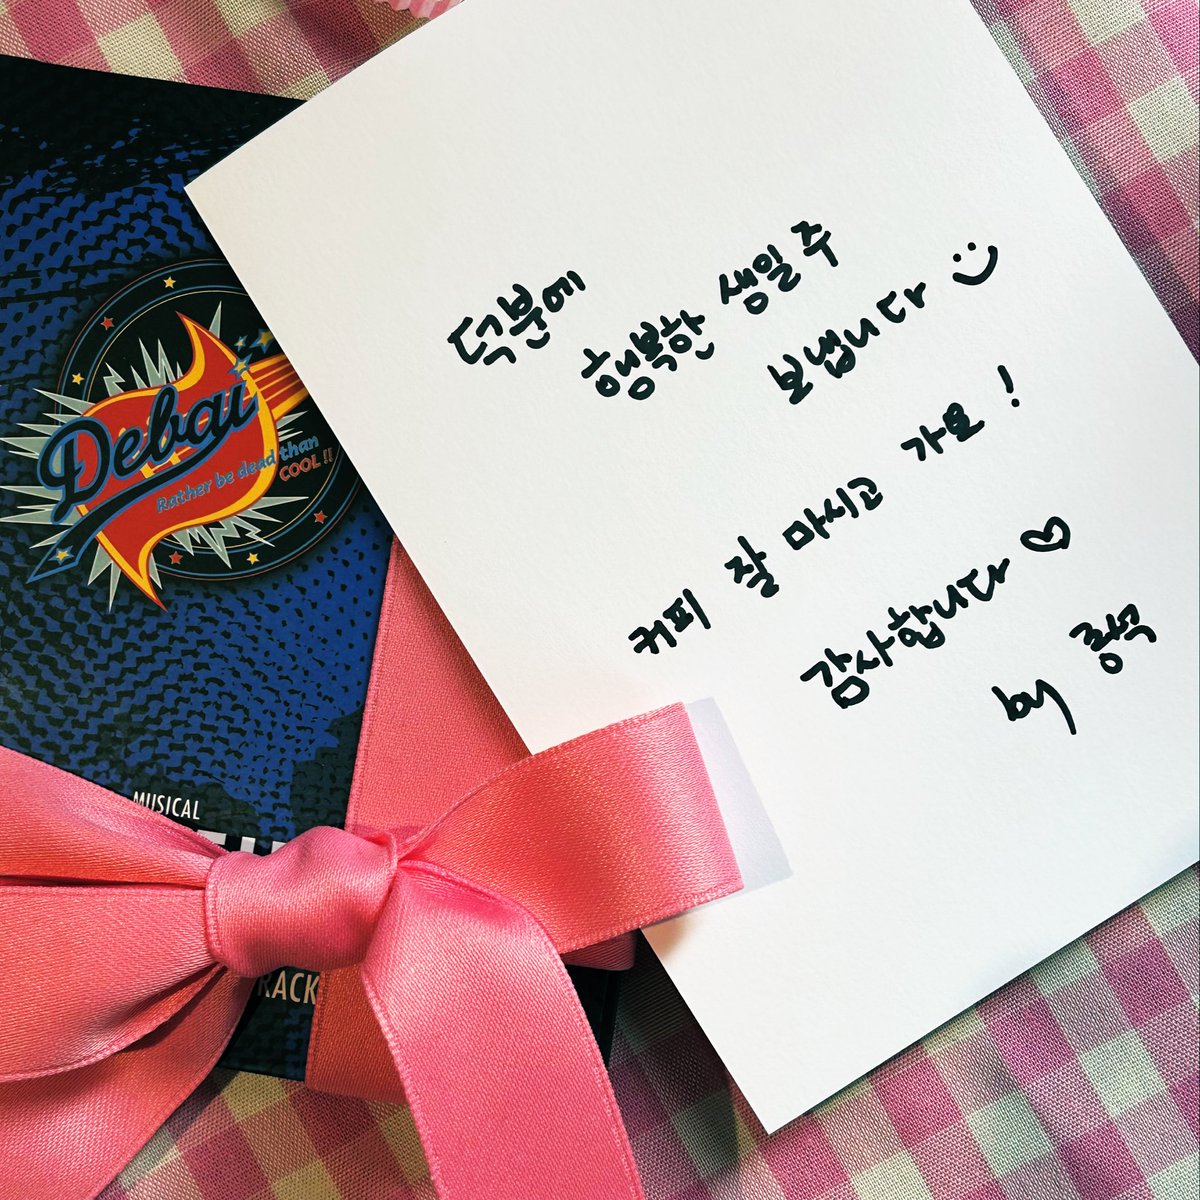 Debai
Rather be dead than
COOL !!
MUSICAL
RACK
덕분에
행복한 생일 주
보냅니다
커피 잘 마시고 가요 !
감사합니다 ♡
by 종석